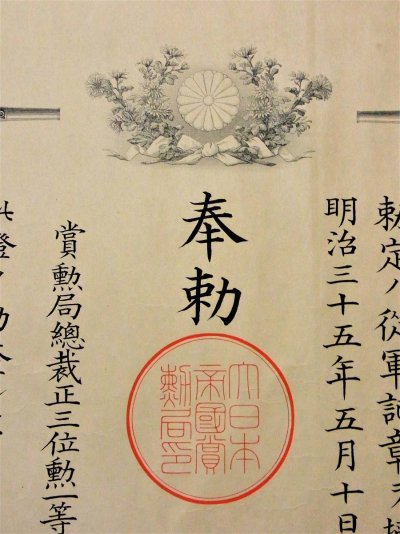 勅定ノ從軍記章ヲ授
明治三十五年五月十日
奉勅
大日本
帝國賞
勲局印
賞勲局總裁正三位勲一等
此證ヲ勘査